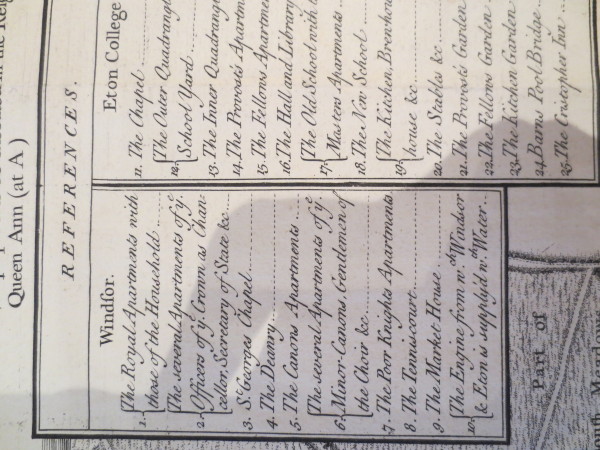 Queen Ann (at A)
REFERENCES.
Windsor.
1. The Royal Apartments with
those of the Household
2. The several Apartments of yᵉ
Officers of yᵉ Crown as Chan-
cellor Secretary of State &c
3. Sᵗ Georges Chapel
4. The Deanry
5. The Canons Apartments
6. The several Apartments of yᵉ
Minor-Canons, Gentlemen of
the Choir &c
7. The Poor Knights Apartments
8. The Tennis-court
9. The Market House
10. The Engine from wᶜʰ Windsor
& Eton is supply'd wᵗʰ Water
Eton College
11. The Chapel
12. The Outer Quadrangl
School Yard
13. The Inner Quadrang
14. The Provosts Apartm
15. The Fellows Apartme
16. The Hall and Library
17. The Old School with
Masters Apartments
18. The New School
19. The Kitchin Brewhou
house &c
20. The Stables &c
21. The Provosts Garden
22. The Fellows Garden
23. The Kitchen Garden
24. Barns Pool Bridge
25. The Cristopher Inn
Part of
outh Meadow